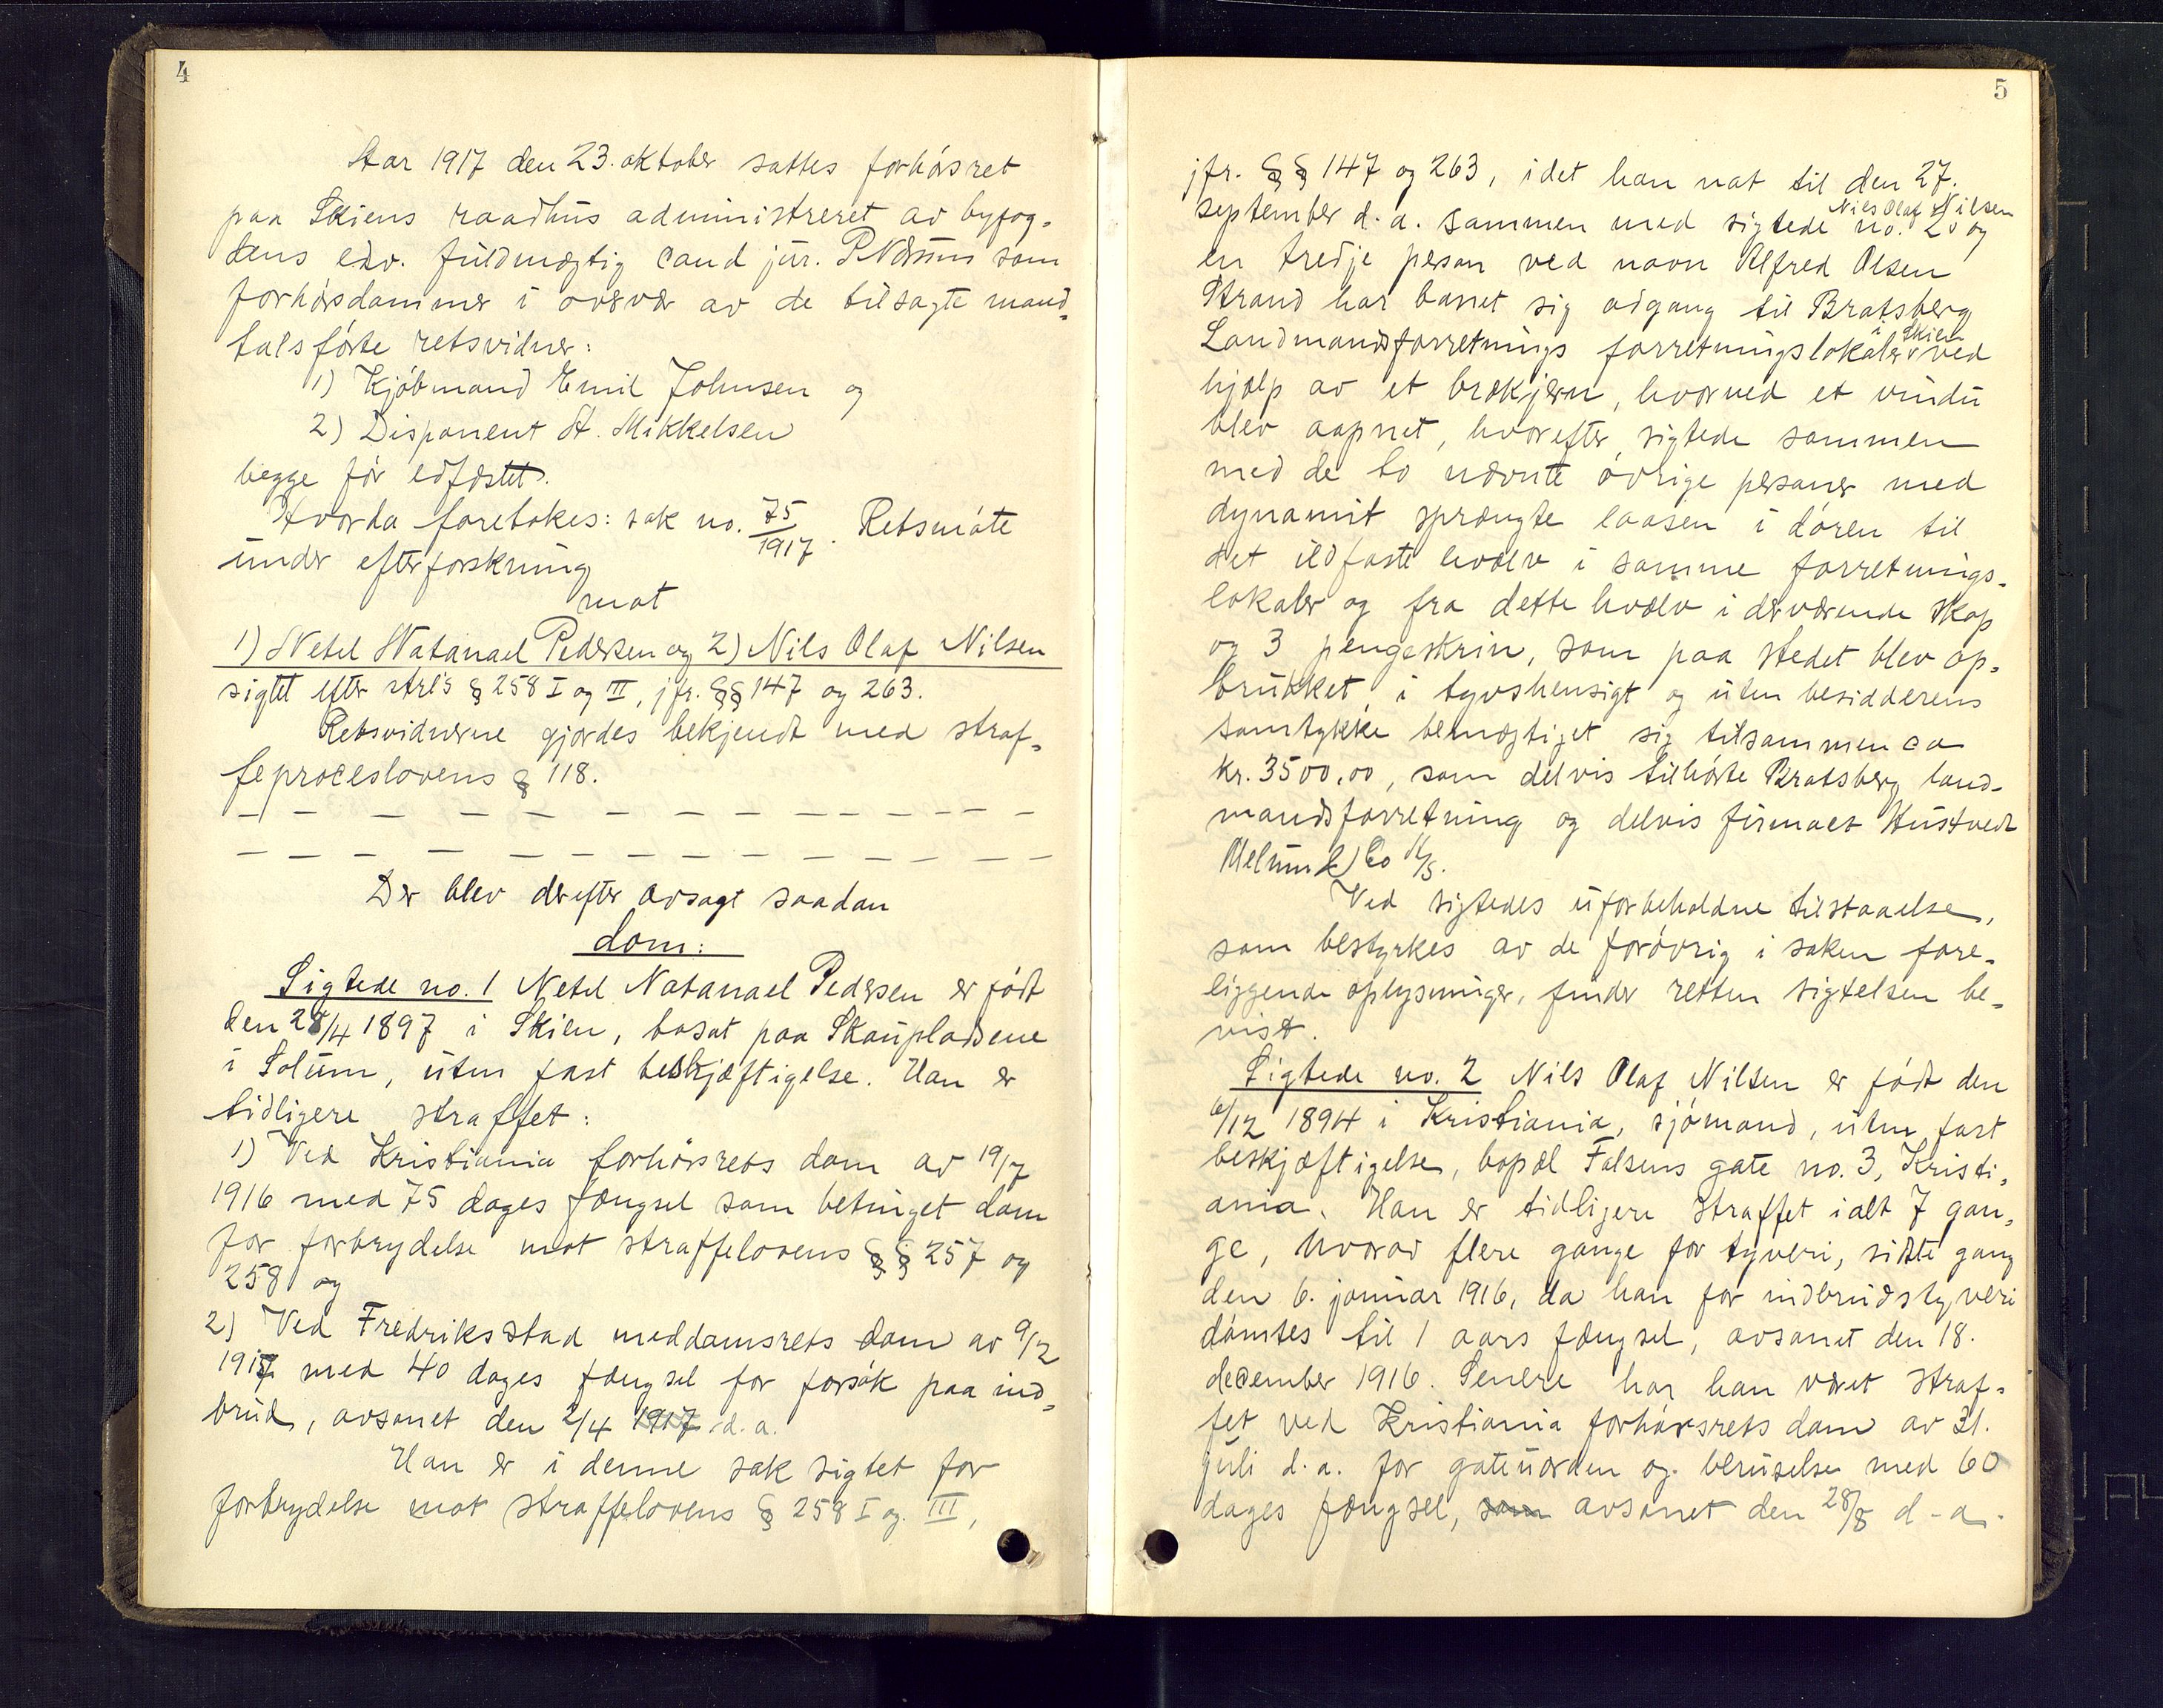 4
Aar 1917 den 23. oktober sattes forhörsret
paa Skiens raadhus administreret av byfog-
dens edv. fuldmægtig cand jur. P. Næsss som
forhörsdommer i overvær av de tilsagte mand-
talsförte retsvidner:
1) Kjöbmand Emil Johnsen og
2) Disponent A. Mikkelsen
begge för edfæstet.
Hvorda foretokes: sak no. 75/1917. Retsmöte
under efterforskning
mot
1) Netel Natanael Pedersen og 2) Nils Olaf Nilsen
sigtet efter strl's § 258 I og III, jfr. §§ 147 og 263.
Retsvidnerne gjordes bekjendt med straf-
feproceslovens § 118.
— — — — — — — — — — — — — —
— — — — — — — — — — — — — —
Der blev derefter avsagt saadan
dom:
Sigtede no. 1 Netel Natanael Pedersen er födt
den 28/4 1897 i Skien, bosat paa Skaupladsene
i Solum, uten fast beskjæftigelse. Han er
tidligere straffet:
1) Ved Kristiania forhörsrets dom av 19/7
1916 med 75 dages fængsel som betinget dom
for forbrydelse mot straffelovens §§ 257 og
258 og
2) Ved Fredriksstad meddomsrets dom av 9/2
1917 med 40 dages fængsel for forsök paa ind-
brud, avsonet den 2/4 1917 d. a.
Han er i denne sak sigtet for
forbrydelse mot straffelovens § 258 I og III,
5
jfr. §§ 147 og 263, idet han nat til den 27.
september d. a. sammen med sigtede no. 2 Nils Olaf Nilsen og
en tredje person ved navn Alfred Olsen
Strand har banet sig adgang til Bratsberg
Landmandsforretnings forretningslokaler i Skien ved
hjælp av et brækjern, hvorved et vindu
blev aapnet, hvorefter sigtede sammen
med de to nævnte övrige personer med
dynamit sprængte laasen i dören til
det ildfaste hvælv i samme forretnings-
lokaler og fra dette hvælv i derværende skap
og 3 pengeskrin, som paa stedet blev op-
brukket, i tyvshensigt og uten besidderens
samtykke bemægtiget sig tilsammen ca
kr. 3500,00, som delvis tilhörte Bratsberg land-
mandsforretning og delvis firmaet Hustvedt
Melum & Co A/S.
Ved sigtedes uforbeholdne tilstaaelse,
som bestyrkes av de forövrig i saken fore-
liggende oplysninger, finder retten sigtelsen be-
vist.
Sigtede no. 2 Nils Olaf Nilsen er födt den
6/12 1894 i Kristiania, sjömand, uten fast
beskjæftigelse, bopæl Falsens gate no. 3, Kristi-
ania. Han er tidligere straffet ialt 7 gan-
ge, hvorav flere gange for tyveri, sidste gang
den 6. januar 1916, da han for indbrudstyveri
dömtes til 1 aars fængsel, avsonet den 18.
december 1916. Senere har han været straf-
fet ved Kristiania forhörsrets dom av 31.
juli d. a. for gateuorden og beruselse med 60
dages fængsel, som avsonet den 28/8 d. a.